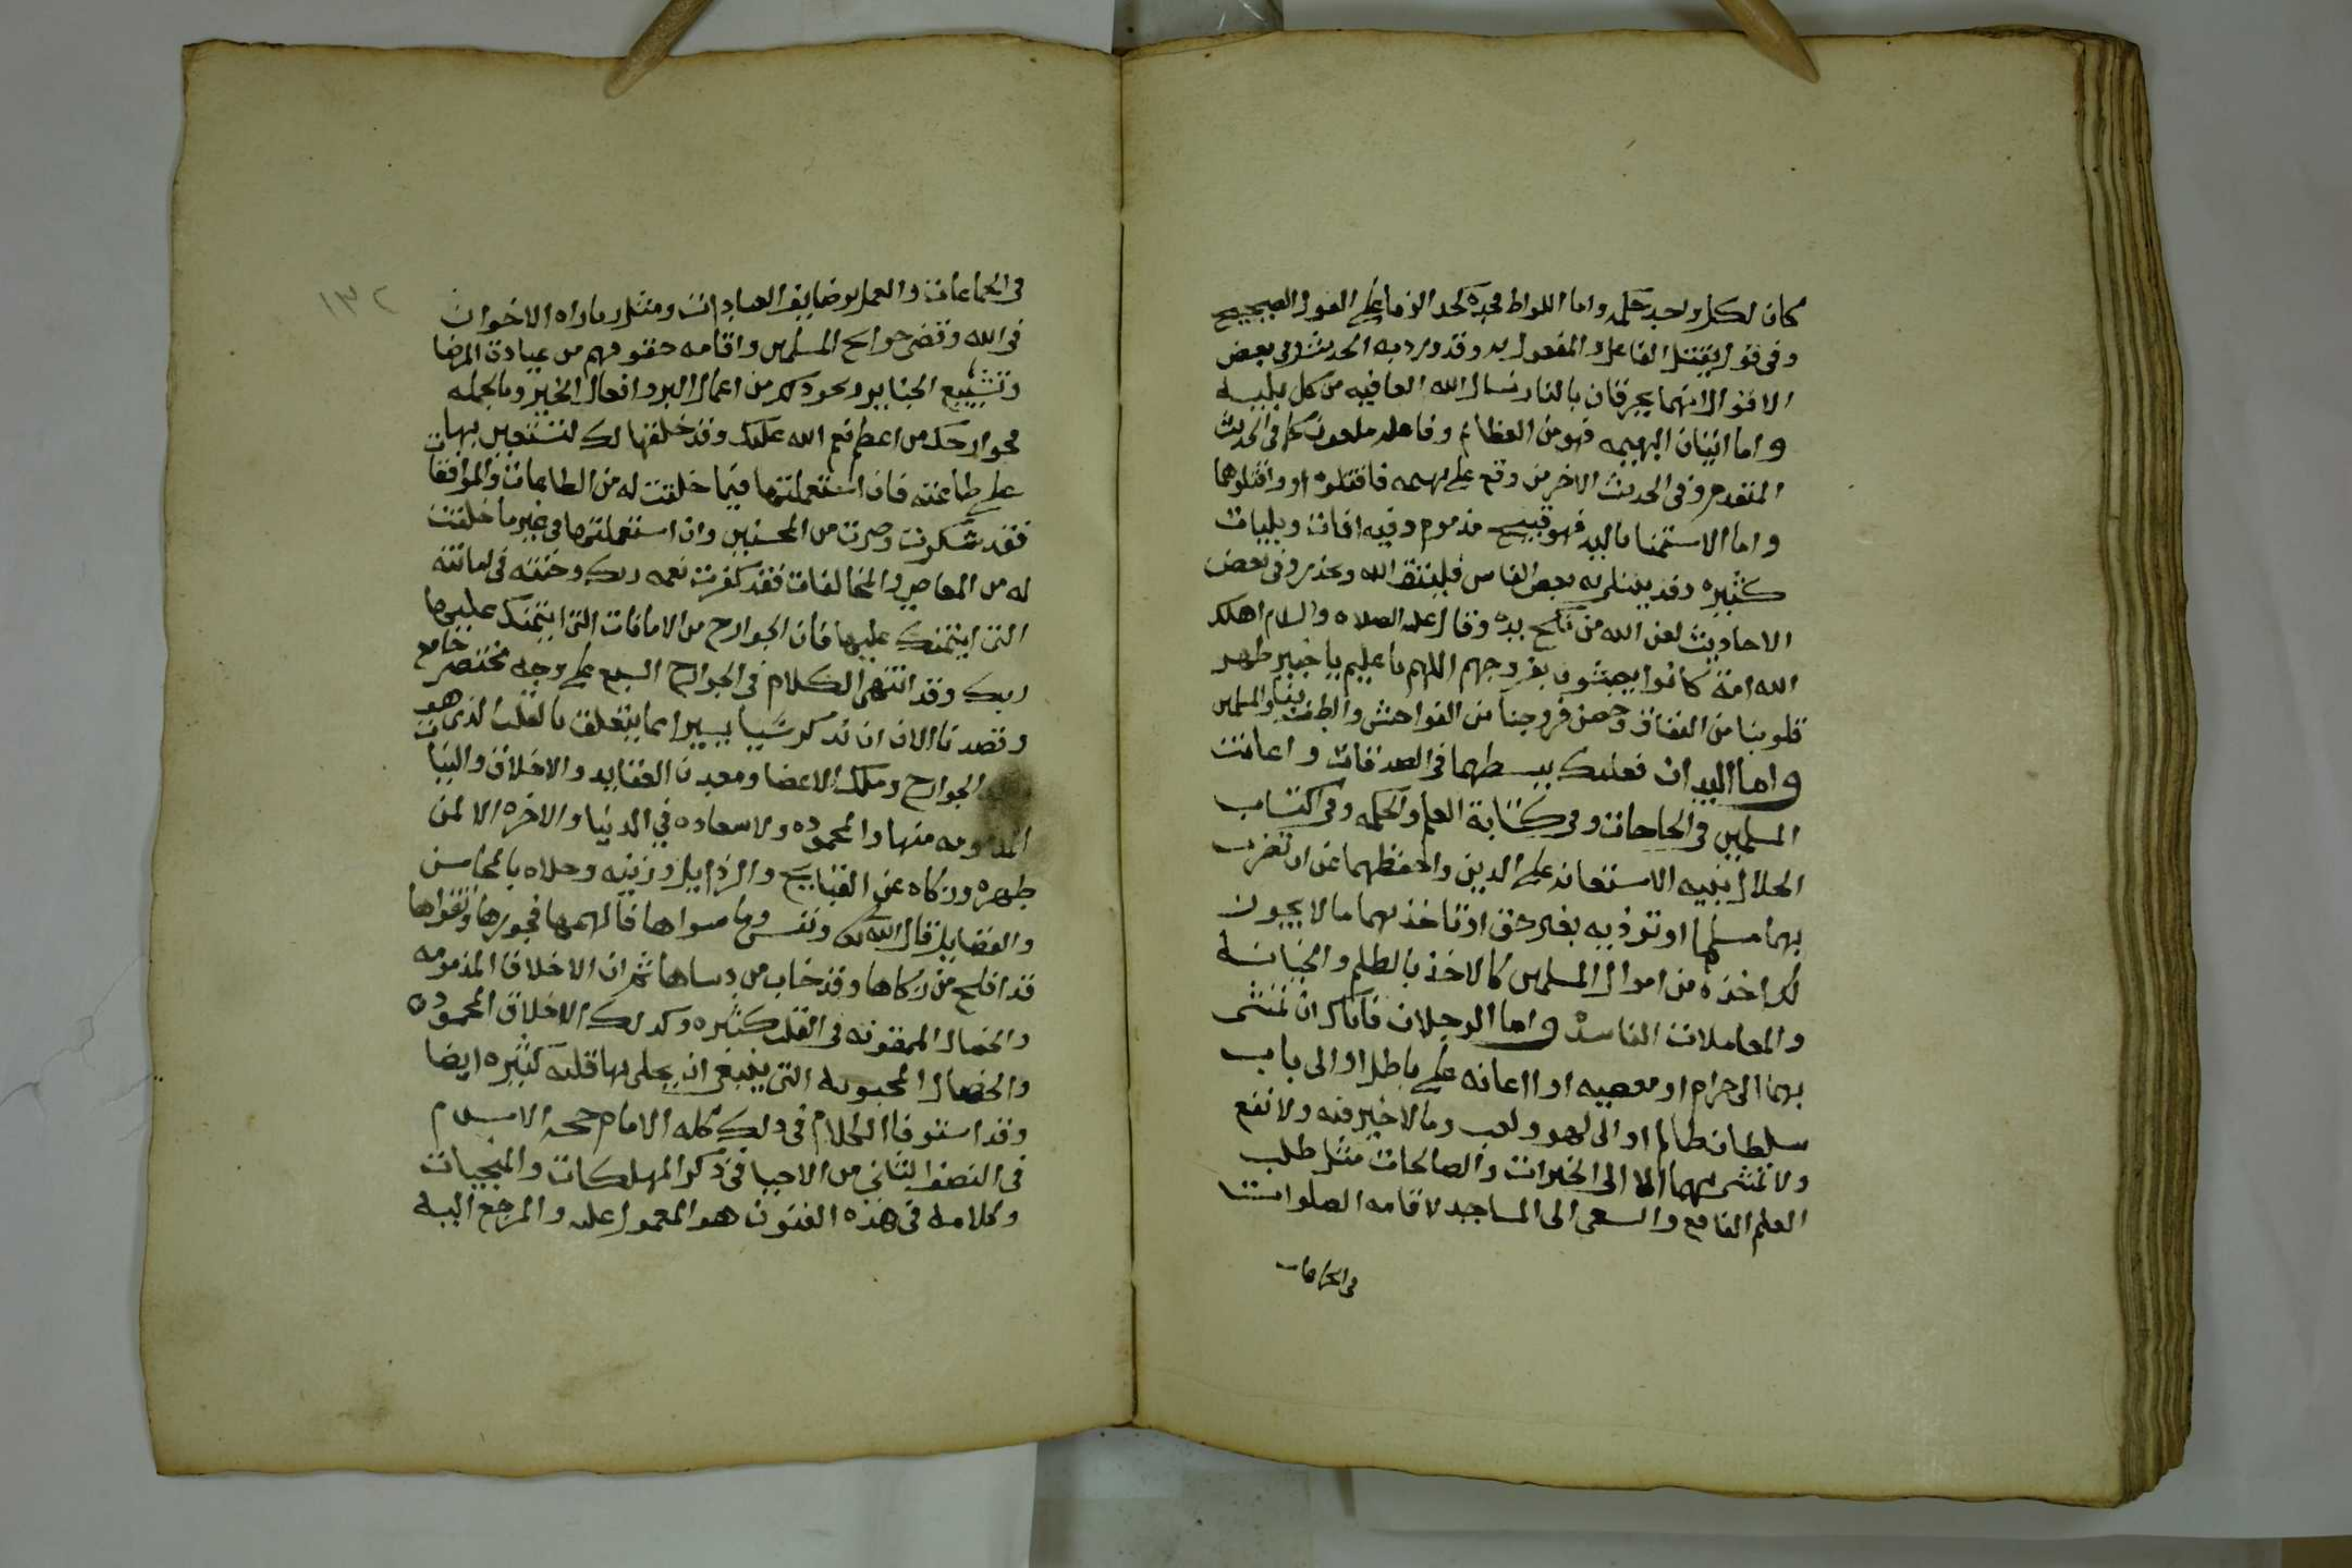 كان لكل واحد حكمه واما اللواط فحده كحد الزنا على القول الصحيح
وفي قول يقتل الفاعل والمفعول به وقد ورد به الحديث وفي بعض
الاقوال انهما يحرقان بالنار نسال الله العافيه من كل بليه
واما اتيان البهيمه فهو من العظائم وفاعله ملعون كما في الحديث
المتقدم وفي الحديث الاخر من وقع على بهيمه فاقتلوه واقتلوها
واما الاستمنا باليد فهو قبيح مذموم وفيه افات وبليات
كثيره وقد يبتلى به بعض الناس فليتق الله ويحذر وفي بعض
الاحاديث لعن الله من نكح يده وقال عليه الصلاه والسلام اهلك
الله امة كانوا يعبثون بفروجهم اللهم يا عليم يا خبير طهر
قلوبنا من النفاق وحصن فروجنا من الفواحش والطف بنا والمسلمين
واما اليدان فعليك ببسطهما في الصدقات واعانت
المسلمين في الحاجات وفي كتابة العلم والحكمه وفي اكتساب
الحلال بنيه الاستعانه على الدين واحفظهما عن ان تضرب
بهما مسلما او توذيه بغير حق او تاخذ بهما ما لا يجوز
لك اخذه من اموال المسلمين كالاخذ بالظلم والخيانه
والمعاملات الفاسده واما الرجلان فاياك ان تمشي
بهما الى حرام او معصيه او اعانه على باطل او الى باب
سلطان ظالم او الى لهو ولعب وما لا خير فيه ولا نفع
ولا تمشي بهما الا الى الخيرات والصالحات مثل طلب
العلم النافع والسعي الى المساجد لاقامه الصلوات
في الجماعات
١٣٢
في الجماعات والعمل بوضايف العبادات ومثل زياراه الاخوان
في الله وقضى حوايج المسلمين واقامه حقوقهم من عيادة المرضا
وتشييع الجنايز ونحو ذلك من اعمال البر وافعال الخير وبالجمله
فجوارحك من اعظم نعم الله عليك وقد خلقها لك لتستعين بها
على طاعته فان استعملتها فيما خلقت له من الطاعات والموافقات
فقد شكرت وصرت من المحسنين وان استعملتها في غير ما خلقت
له من المعاصي والمخالفات فقد كفرت نعمه ربك وخنته في امانته
التي ايتمنك عليها فان الجوارح من الامانات التي ايتمنك عليها
ربك وقد انتهى الكلام في الجوارح السبع على وجه مختصر جامع
وقصدنا الان ان نذكر شييا يسيرا مما يتعلق بالقلب الذي هو
الجوارح وملك الاعضا ومعدن العقايد والاخلاق والنيات
المذمومه منها والمحموده ولا سعاده في الدنيا والاخره الا لمن
طهره وزكاه عن القبايح والرذايل وزينه وحلاه بالمحاسن
والفضايل قال الله تعالى ونفس وما سواها فالهمها فجورها وتقواها
قد افلح من زكاها وقد خاب من دساها ثم ان الاخلاق المذمومه
والخصال الممقوته في القلب كثيره وكذلك الاخلاق المحموده
والخصال المحبوبه التي ينبغي ان يحلى بها قلبه كثيره ايضا
وقد استوفا الكلام في ذلك كله الامام حجه الاسلام
في النصف الثاني من الاحيا في ذكر المهلكات والمنجيات
وكلامه في هذه الفنون هو المعمول عليه والمرجع اليه